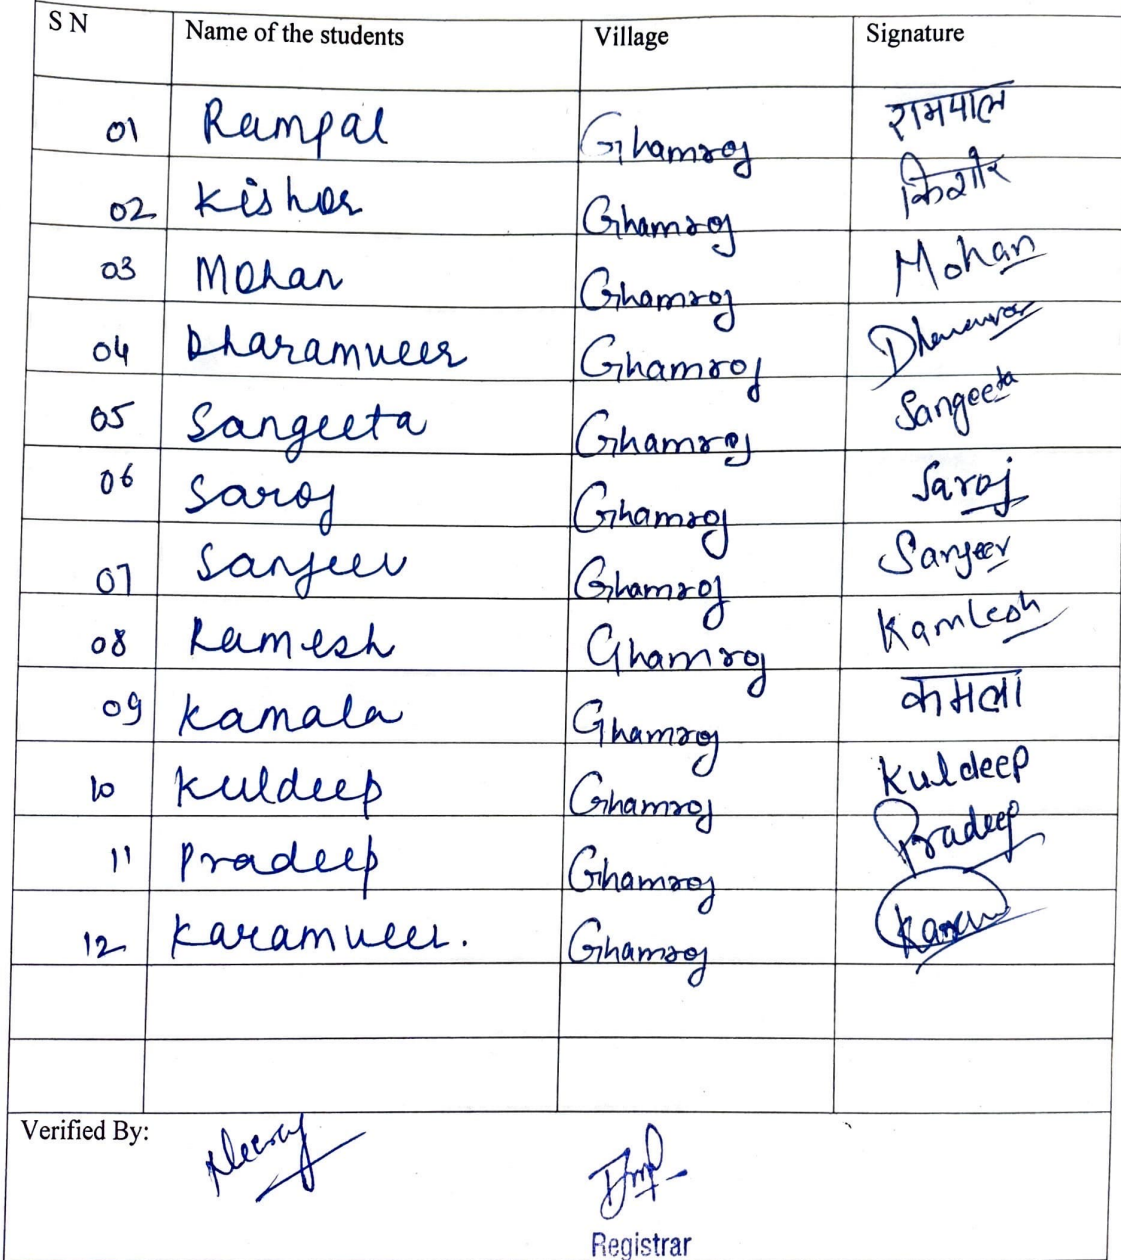 S N Name of the students Village Signature
01 Rampal Ghamroj रामपाल
02 Kishor Ghamroj किशोर
03 Mohan Ghamroj Mohan
04 Dharamveer Ghamroj
05 Sangeeta Ghamroj Sangeeta
06 Saroj Ghamroj Saroj
07 Sanjeev Ghamroj Sanjeev
08 Ramesh Ghamroj Kamlesh
09 Kamala Ghamroj कमला
10 Kuldeep Ghamroj Kuldeep
11 Pradeep Ghamroj Pradeep
12 Karamveer. Ghamroj
Verified By: Neeraj
Registrar